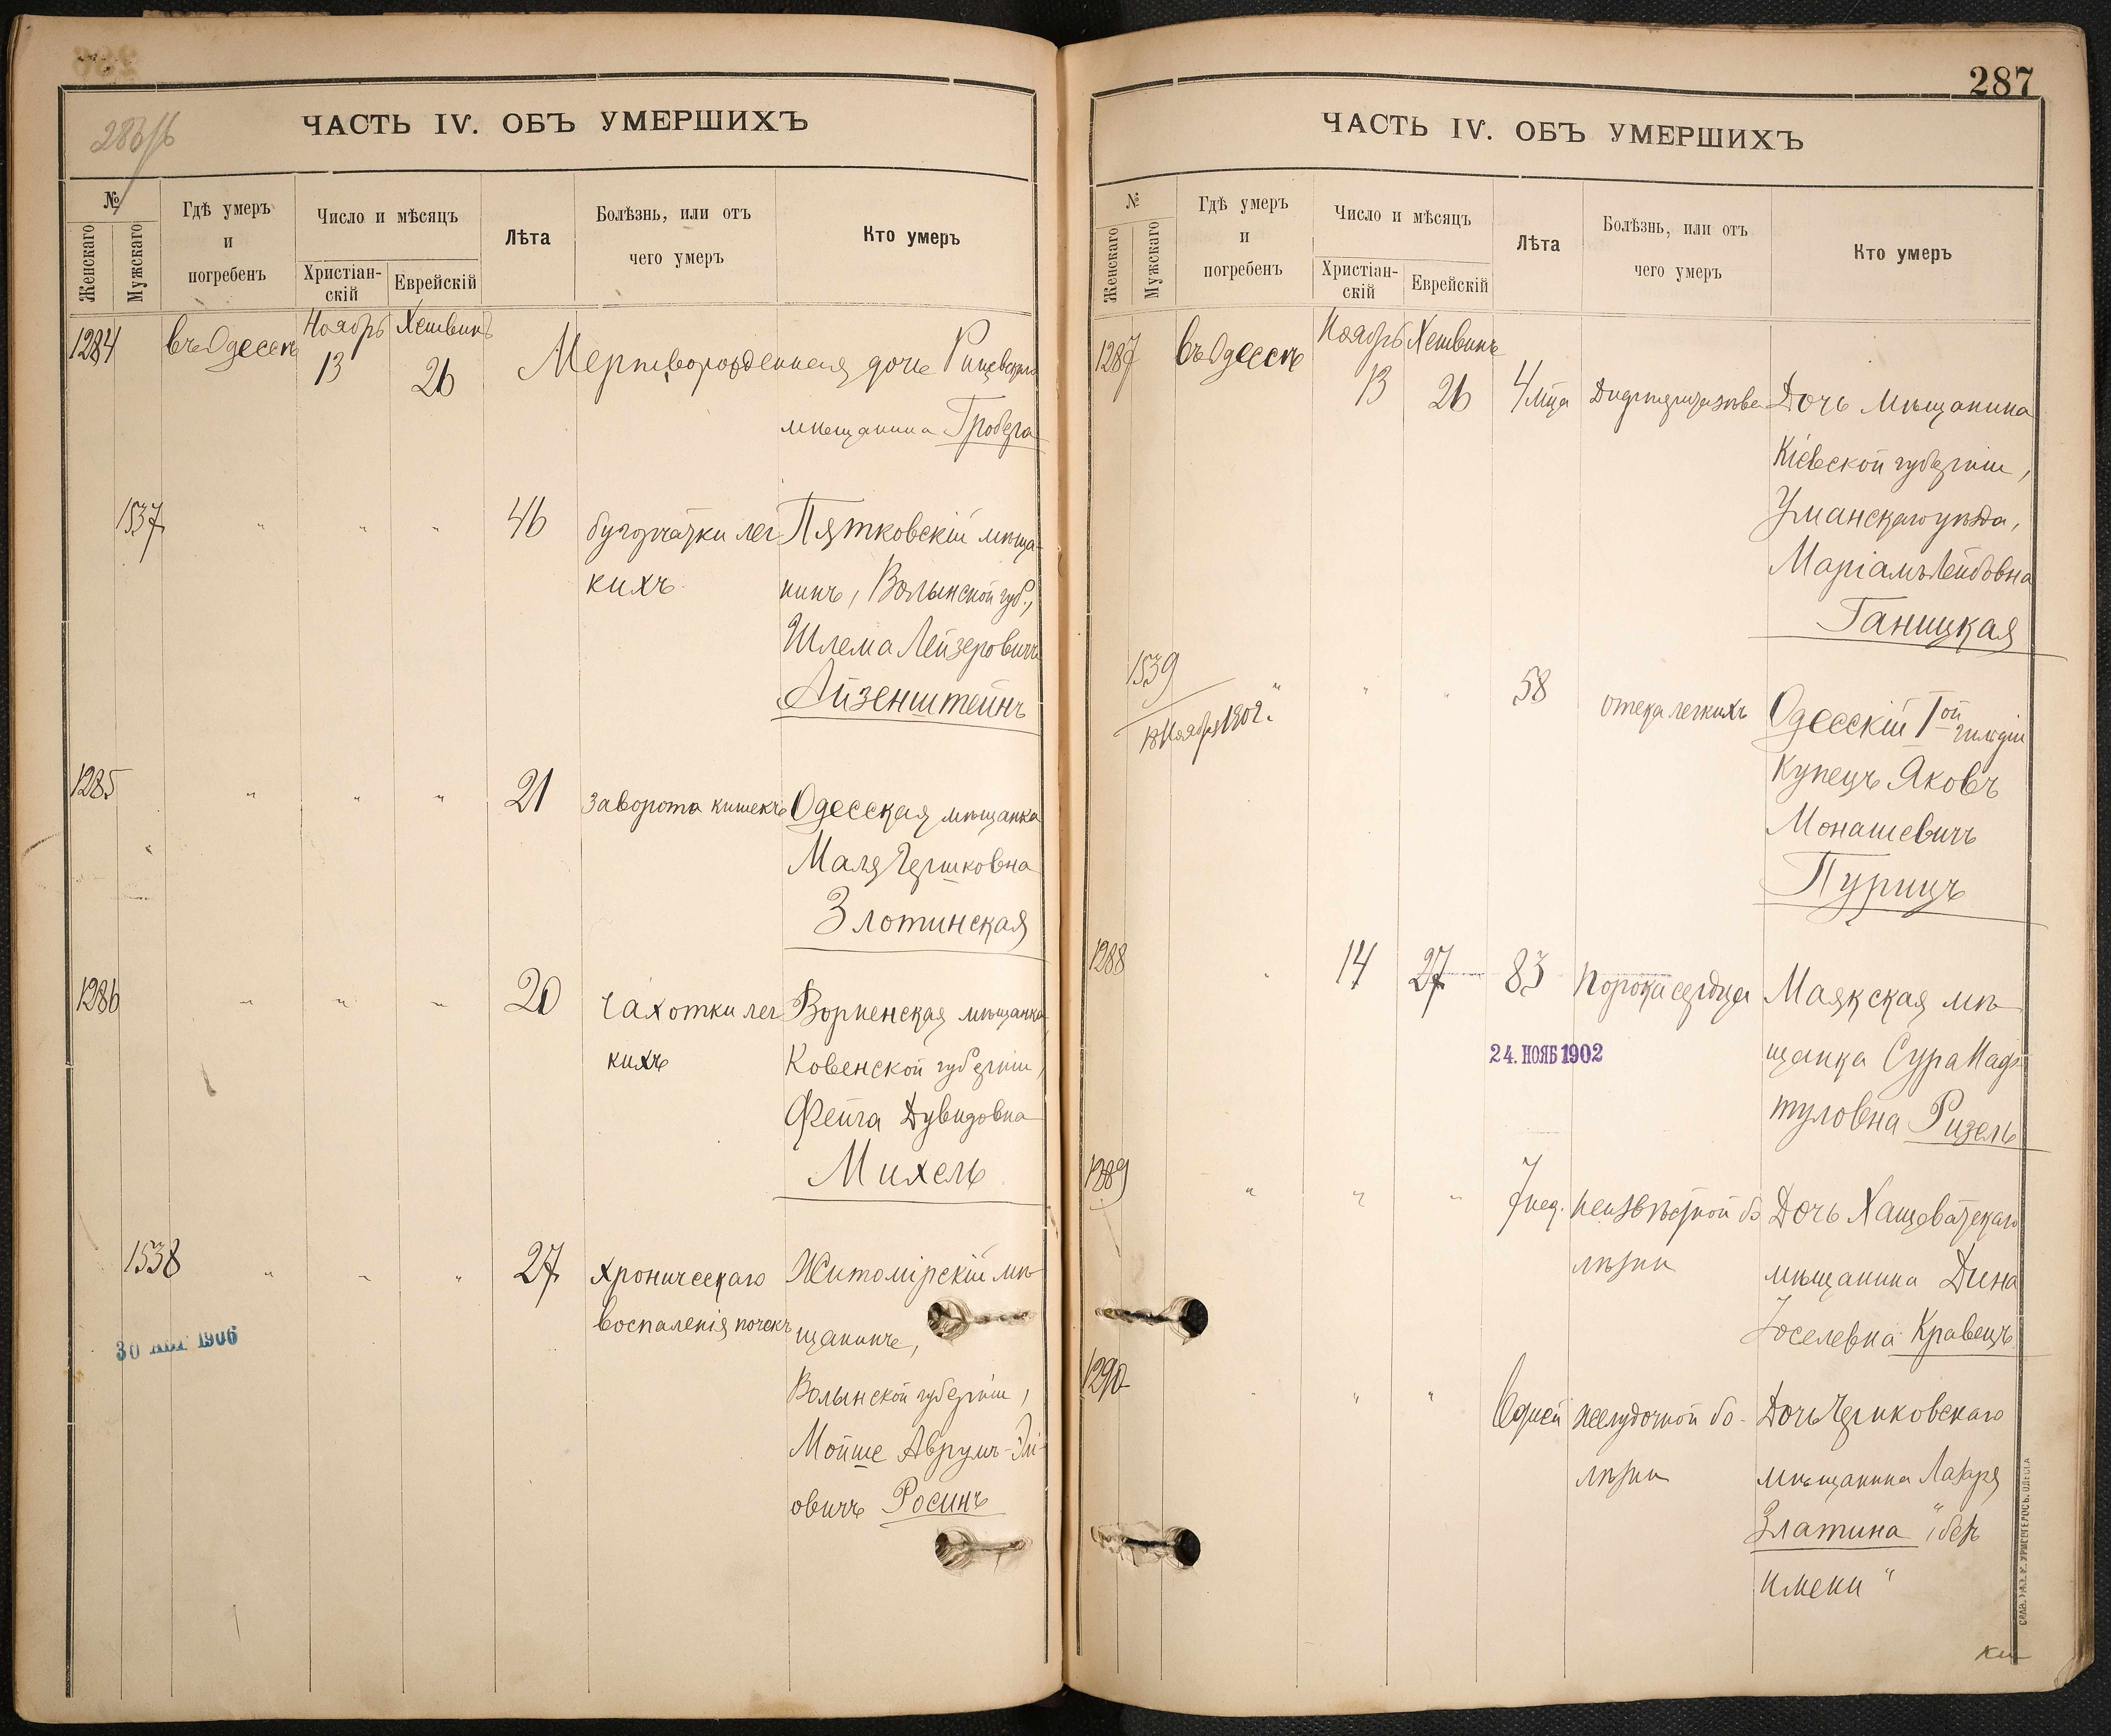 ЧАСТЬ IV. ОБЪ УМЕРШИХЪ
№
Женскаго
Мужскаго
Гдѣ умеръ
и
погребенъ
Число и мѣсяцъ
Христіан-
скій
Еврейскій
Лѣта
Болѣзнь, или отъ
чего умеръ
Кто умеръ
1284
въ Одессѣ
Ноябрь
13
Хешвинъ
26
Мертворожденная дочь
мѣщанина Гробера
1537
"
"
"
46
бугорчатки лег
кихъ
Пятковскій мѣща-
нинъ, Волынской губ.,
Шлема Лейзеровичъ
Айзенштейнъ
1285
"
"
"
21
заворота кишекъ
Одесская мѣщанка
Маля Гершковна
Злотинская
1286
"
"
"
20
чахотки лег
кихъ
Ворненская мѣщанка,
Ковенской губерніи,
Фейга Дувидовна
Михель
1538
"
"
"
27
хроническаго
воспаленія почекъ
Житомірскій мѣ-
щанинъ,
Волынской губерніи,
Мойше Аврумъ-Эли-
овичъ Росинъ
30 АВГ 1906
287
ЧАСТЬ IV. ОБЪ УМЕРШИХЪ
№
Женскаго
Мужскаго
Гдѣ умеръ
и
погребенъ
Число и мѣсяцъ
Христіан-
скій
Еврейскій
Лѣта
Болѣзнь, или отъ
чего умеръ
Кто умеръ
1287
въ Одессѣ
Ноябрь
13
Хешвинъ
26
4 м-ца
Дифтерита зѣва
Дочь мѣщанина
Кіевской губерніи,
Уманскаго уѣзда,
Маріамъ Лейбовна
Ганицкая
1539
18 Ноября 1902.
"
"
"
58
отека легкихъ
Одесскій 1ой гильдіи
купецъ Яковъ
Монашевичъ
Пурицъ
1288
"
14
27
83
порока сердца
Маякская мѣ-
щанка Сура Наф-
туловна Ризель
24. НОЯБ 1902
1289
"
"
"
7 нед.
неизвѣстной бо
лѣзни
Дочь Хащеватскаго
мѣщанина Дина
Іоселевна Кравецъ
1290
"
"
"
6 дней
желудочной бо-
лѣзни
Дочь Чериковскаго
мѣщанина Лазаря
Златина "безъ
имени"